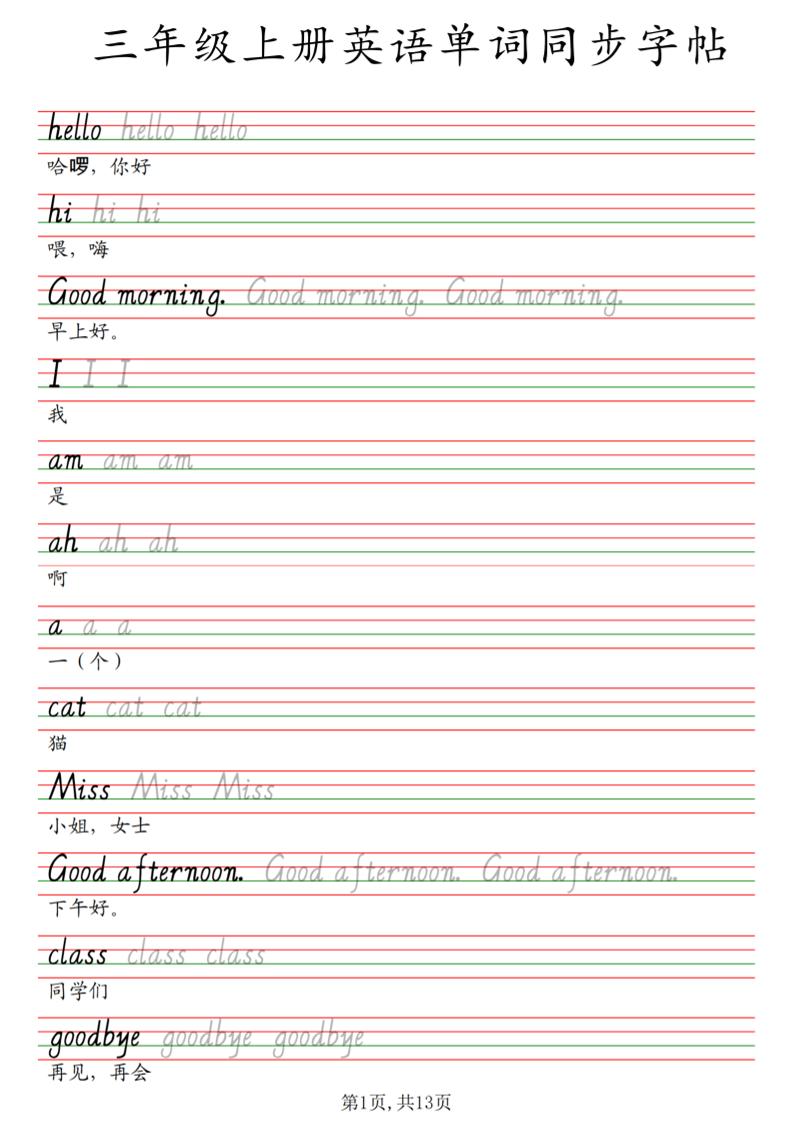 三年级上册英语单词同步字帖
hello hello hello
哈啰，你好
hi hi hi
喂，嗨
Good morning. Good morning. Good morning.
早上好。
I I I
我
am am am
是
ah ah ah
啊
a a a
一（个）
cat cat cat
猫
Miss Miss Miss
小姐，女士
Good afternoon. Good afternoon. Good afternoon.
下午好。
class class class
同学们
goodbye goodbye goodbye
再见，再会
第1页,共13页